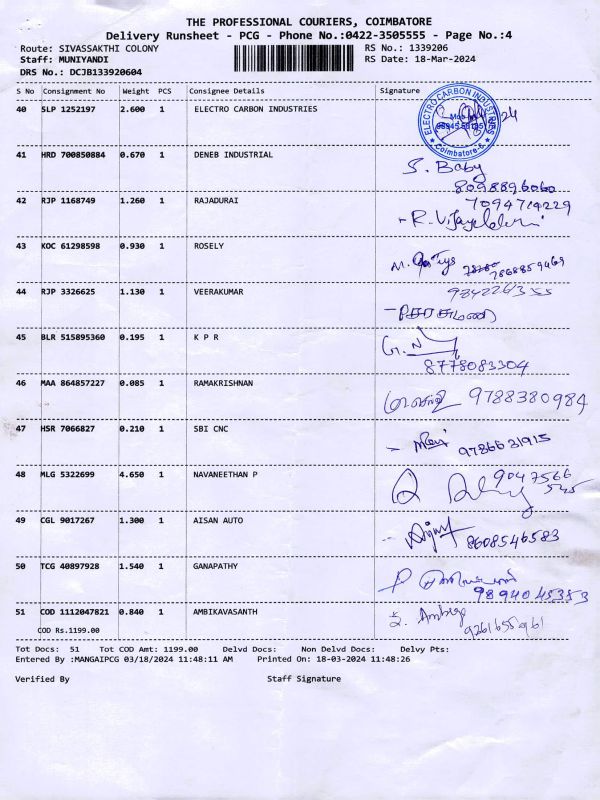 THE PROFESSIONAL COURIERS, COIMBATORE
Delivery Runsheet - PCG - Phone No.:0422-3505555 - Page No.:4
Route: SIVASSAKTHI COLONY RS No.: 1339206
Staff: MUNIYANDI RS Date: 18-Mar-2024
DRS No.: DCJB133920604
S No Consignment No Weight PCS Consignee Details Signature
40 SLP 1252197 2.600 1 ELECTRO CARBON INDUSTRIES
ELECTRO CARBON INDUSTRIES
Coimbatore-6
41 HRD 700850884 0.670 1 DENEB INDUSTRIAL S. Baby
8098896060
42 RJP 1168749 1.260 1 RAJADURAI 7094714229
43 KOC 61298598 0.930 1 ROSELY
7868859469
44 RJP 3326625 1.130 1 VEERAKUMAR 9842261355
45 BLR 515895360 0.195 1 K P R G. N
8778083304
46 MAA 864857227 0.085 1 RAMAKRISHNAN 9788380984
47 HSR 7066827 0.210 1 SBI CNC 9786631915
48 MLG 5322699 4.650 1 NAVANEETHAN P 9047566
545
49 CGL 9017267 1.300 1 AISAN AUTO 8608546583
50 TCG 40897928 1.540 1 GANAPATHY
9894045353
51 COD 1112047821 0.840 1 AMBIKAVASANTH
COD Rs.1199.00
Tot Docs: 51 Tot COD Amt: 1199.00 Delvd Docs: Non Delvd Docs: Delvy Pts:
Entered By :MANGAIPCG 03/18/2024 11:48:11 AM Printed On: 18-03-2024 11:48:26
Verified By Staff Signature